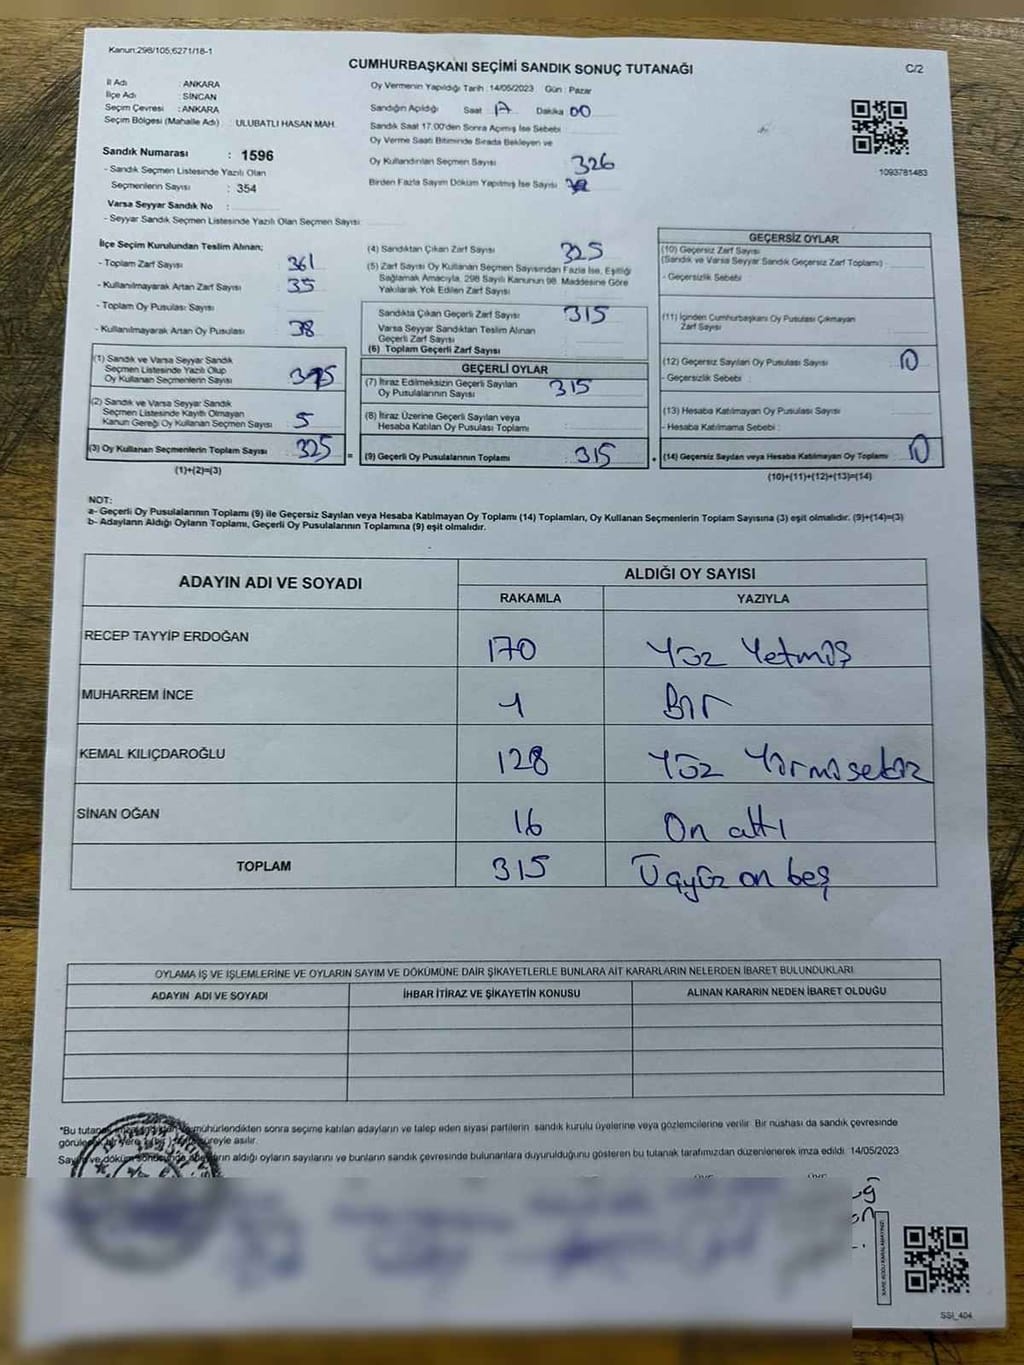 Kanun:298/105;6271/18-1
CUMHURBAŞKANI SEÇİMİ SANDIK SONUÇ TUTANAĞI
C/2
İl Adı : ANKARA
İlçe Adı : SİNCAN
Seçim Çevresi : ANKARA
Seçim Bölgesi (Mahalle Adı) : ULUBATLI HASAN MAH.
Sandık Numarası : 1596
- Sandık Seçmen Listesinde Yazılı Olan
Seçmenlerin Sayısı : 354
Varsa Seyyar Sandık No :
- Seyyar Sandık Seçmen Listesinde Yazılı Olan Seçmen Sayısı:
Oy Vermenin Yapıldığı Tarih : 14/05/2023 Gün : Pazar
Sandığın Açıldığı Saat Dakika 00
Sandık Saat 17.00'den Sonra Açılmış İse Sebebi
Oy Verme Saati Bitiminde Sırada Bekleyen ve
Oy Kullandırılan Seçmen Sayısı 326
Birden Fazla Sayım Döküm Yapılmış İse Sayısı
1093781483
İlçe Seçim Kurulundan Teslim Alınan;
- Toplam Zarf Sayısı 361
- Kullanılmayarak Artan Zarf Sayısı 35
- Toplam Oy Pusulası Sayısı
- Kullanılmayarak Artan Oy Pusulası 38
(1) Sandık ve Varsa Seyyar Sandık
Seçmen Listesinde Yazılı Olup
Oy Kullanan Seçmenlerin Sayısı
(2) Sandık ve Varsa Seyyar Sandık
Seçmen Listesinde Kayıtlı Olmayan
Kanun Gereği Oy Kullanan Seçmen Sayısı 5
(3) Oy Kullanan Seçmenlerin Toplam Sayısı 325 =
(1)+(2)=(3)
(4) Sandıktan Çıkan Zarf Sayısı 325
(5) Zarf Sayısı Oy Kullanan Seçmen Sayısından Fazla İse, Eşitliği
Sağlamak Amacıyla, 298 Sayılı Kanunun 98. Maddesine Göre
Yakılarak Yok Edilen Zarf Sayısı
Sandıkta Çıkan Geçerli Zarf Sayısı 315
Varsa Seyyar Sandıktan Teslim Alınan
Geçerli Zarf Sayısı
(6) Toplam Geçerli Zarf Sayısı
GEÇERLİ OYLAR
(7) İtiraz Edilmeksizin Geçerli Sayılan
Oy Pusulalarının Sayısı 315
(8) İtiraz Üzerine Geçerli Sayılan veya
Hesaba Katılan Oy Pusulası Toplamı
(9) Geçerli Oy Pusulalarının Toplamı 315
GEÇERSİZ OYLAR
(10) Geçersiz Zarf Sayısı
(Sandık ve Varsa Seyyar Sandık Geçersiz Zarf Toplamı)
- Geçersizlik Sebebi
(11) İçinden Cumhurbaşkanı Oy Pusulası Çıkmayan
Zarf Sayısı
(12) Geçersiz Sayılan Oy Pusulası Sayısı 10
- Geçersizlik Sebebi :
(13) Hesaba Katılmayan Oy Pusulası Sayısı
- Hesaba Katılmama Sebebi :
(14) Geçersiz Sayılan veya Hesaba Katılmayan Oy Toplamı 10
(10)+(11)+(12)+(13)=(14)
NOT:
a- Geçerli Oy Pusulalarının Toplamı (9) ile Geçersiz Sayılan veya Hesaba Katılmayan Oy Toplamı (14) Toplamları, Oy Kullanan Seçmenlerin Toplam Sayısına (3) eşit olmalıdır. (9)+(14)=(3)
b- Adayların Aldığı Oyların Toplamı, Geçerli Oy Pusulalarının Toplamına (9) eşit olmalıdır.
ADAYIN ADI VE SOYADI
ALDIĞI OY SAYISI
RAKAMLA YAZIYLA
RECEP TAYYİP ERDOĞAN 170 Yüz Yetmiş
MUHARREM İNCE 1 Bir
KEMAL KILIÇDAROĞLU 128 Yüz Yirmisekiz
SİNAN OĞAN 16 On altı
TOPLAM 315 Üçyüz on beş
OYLAMA İŞ VE İŞLEMLERİNE VE OYLARIN SAYIM VE DÖKÜMÜNE DAİR ŞİKAYETLERLE BUNLARA AİT KARARLARIN NELERDEN İBARET BULUNDUKLARI
ADAYIN ADI VE SOYADI İHBAR İTİRAZ VE ŞİKAYETİN KONUSU ALINAN KARARIN NEDEN İBARET OLDUĞU
*Bu mühürlendikten sonra seçime katılan adayların ve talep eden siyasi partilerin sandık kurulu üyelerine veya gözlemcilerine verilir. Bir nüshası da sandık çevresinde
süreyle asılır.
aldığı oyların sayılarını ve bunların sandık çevresinde bulunanlara duyurulduğunu gösteren bu tutanak tarafımızdan düzenlenerek imza edildi. 14/05/2023
SSI_404